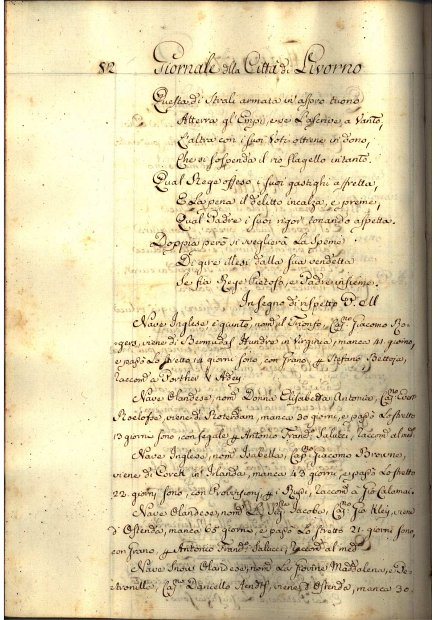 512 Giornale della Città di Livorno
Questa di Strali armata in aspro tuono
Atterra gl'Empj, e se l'ascrive a Vanto,
L'altra con i suoi Voti ottiene in dono,
Che si sospenda il rio flagello intanto.
Qual Rege offeso i suoi gastighi affretta,
E la pena il delitto incalza, e preme,
Qual Padre i suoi rigor tonando aspetta.
Doppia però si sveglierà la Speme
Di gire illesi dalla sua vendetta
Se sia Rege Pietoso, e Padre insieme.
In segno di rispetto
Nave Inglese è giunto, nom. il Trionfo, Cap. Giacomo
viene di Bermudas Hundre in Virginia, manca 41 giorno,
e passò lo stretto 14 giorni sono, con grano, Stefano Bettoja,
raccom. a Porther
Nave Olandese, nom. Donna Elisabetta Antonia, Cap.
Roeloffs, viene di Roterdam, manca 30 giorni, e passò lo stretto
13 giorni sono, con segale, Antonio Franc. Salucci, raccom. al med.
Nave Inglese, nom. Isabella, Cap. Giacomo Browne,
viene di Corck in Irlanda, manca 43 giorni, e passò lo stretto
22 giorni sono, con Provisioni, raccom. a Gio Calamai.
Nave Olandese, nom. Jacoba, Cap. Gio Kley, viene
d'Ostenda, manca 65 giorni, e passò lo stretto 21 giorni sono,
con grano, Antonio Franc. Salucci, raccom. al med.
Nave Snow Olandese, nom. La Jovine Maddalena, e
Petronilla, Cap. viene d'Ostenda, manca 30